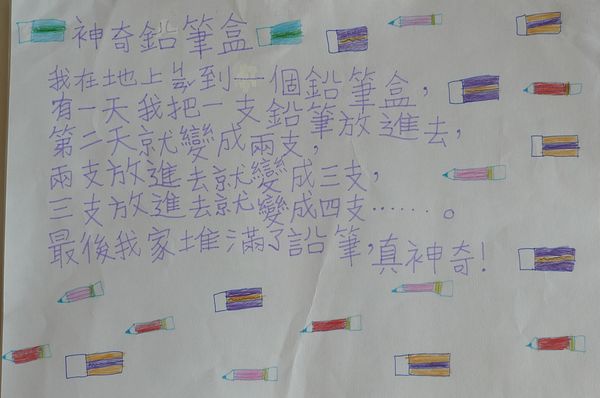 神奇鉛筆盒
我在地上ㄐㄧㄢˇ到一個鉛筆盒,
有一天我把一支鉛筆放進去,
第二天就變成兩支,
兩支放進去就變成三支,
三支放進去就變成四支……。
最後我家堆滿了鉛筆,真神奇!